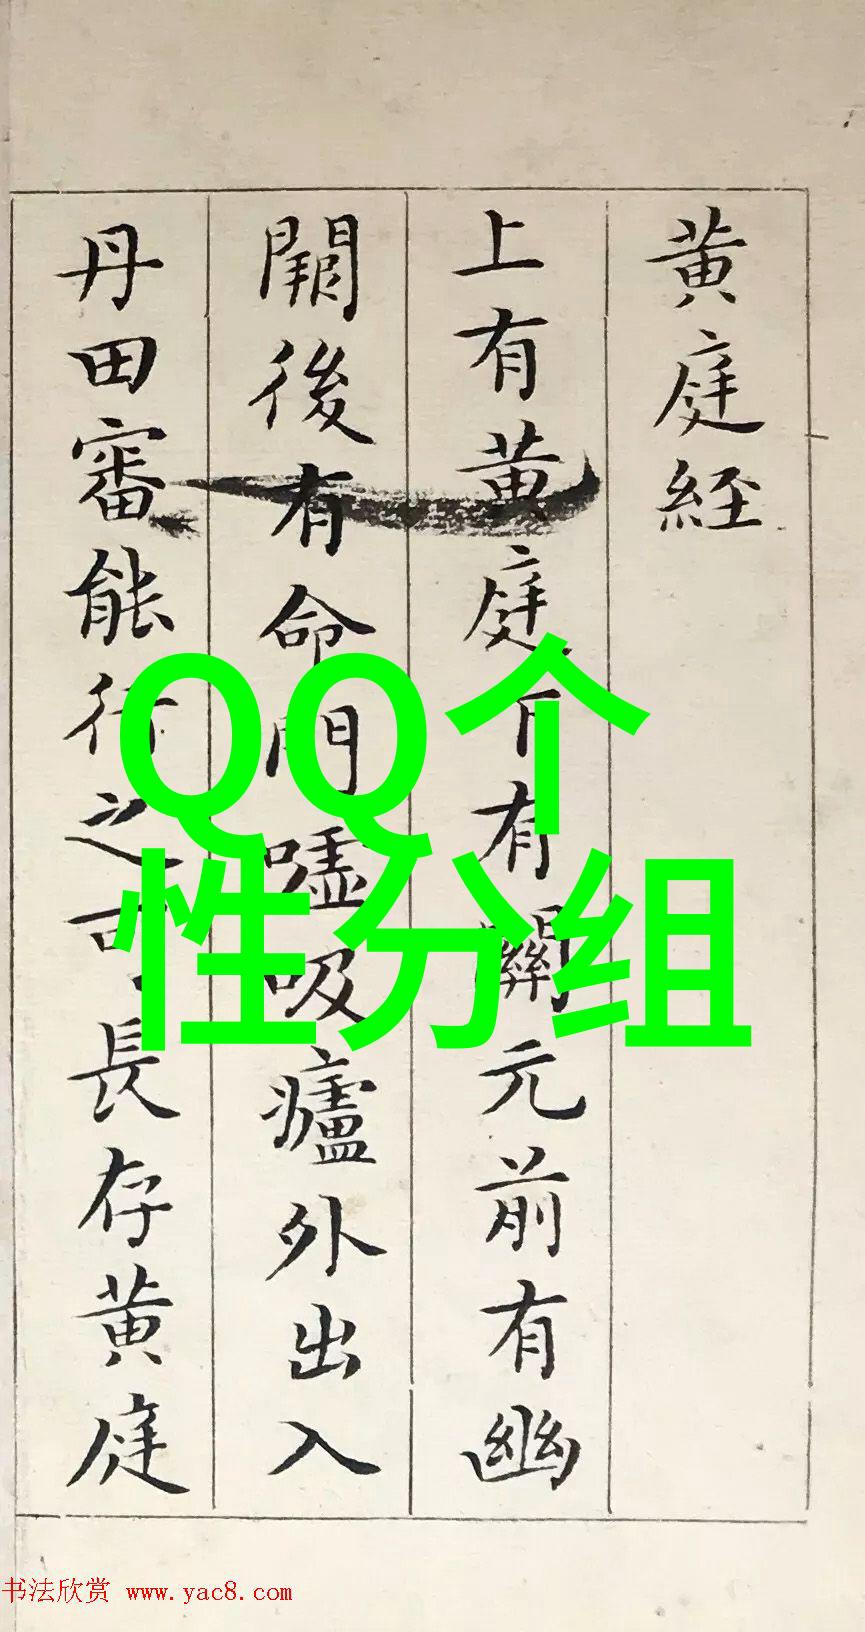 黄庭経
上有黄庭下有關元前有幽
闕後有命門嘘吸廬外出入
丹田審能行之可長存黄庭
QQ个
性分组
书法欣赏 www.yac8.com